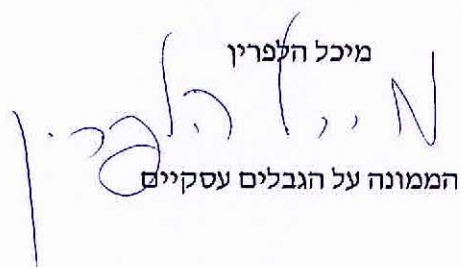 מיכל הלפרין
מיכל הלפרין
הממונה על הגבלים עסקיים